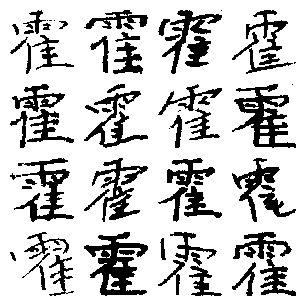 霍霍霍霍
霍霍霍霍
霍霍霍霍
霍霍霍霍